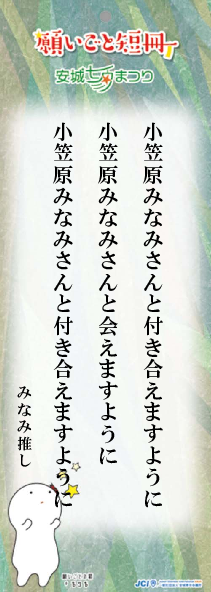 願いごと短冊
安城七夕まつり
小笠原みなみさんと付き合えますように
小笠原みなみさんと会えますように
小笠原みなみさんと付き合えますように
みなみ推し
JCI